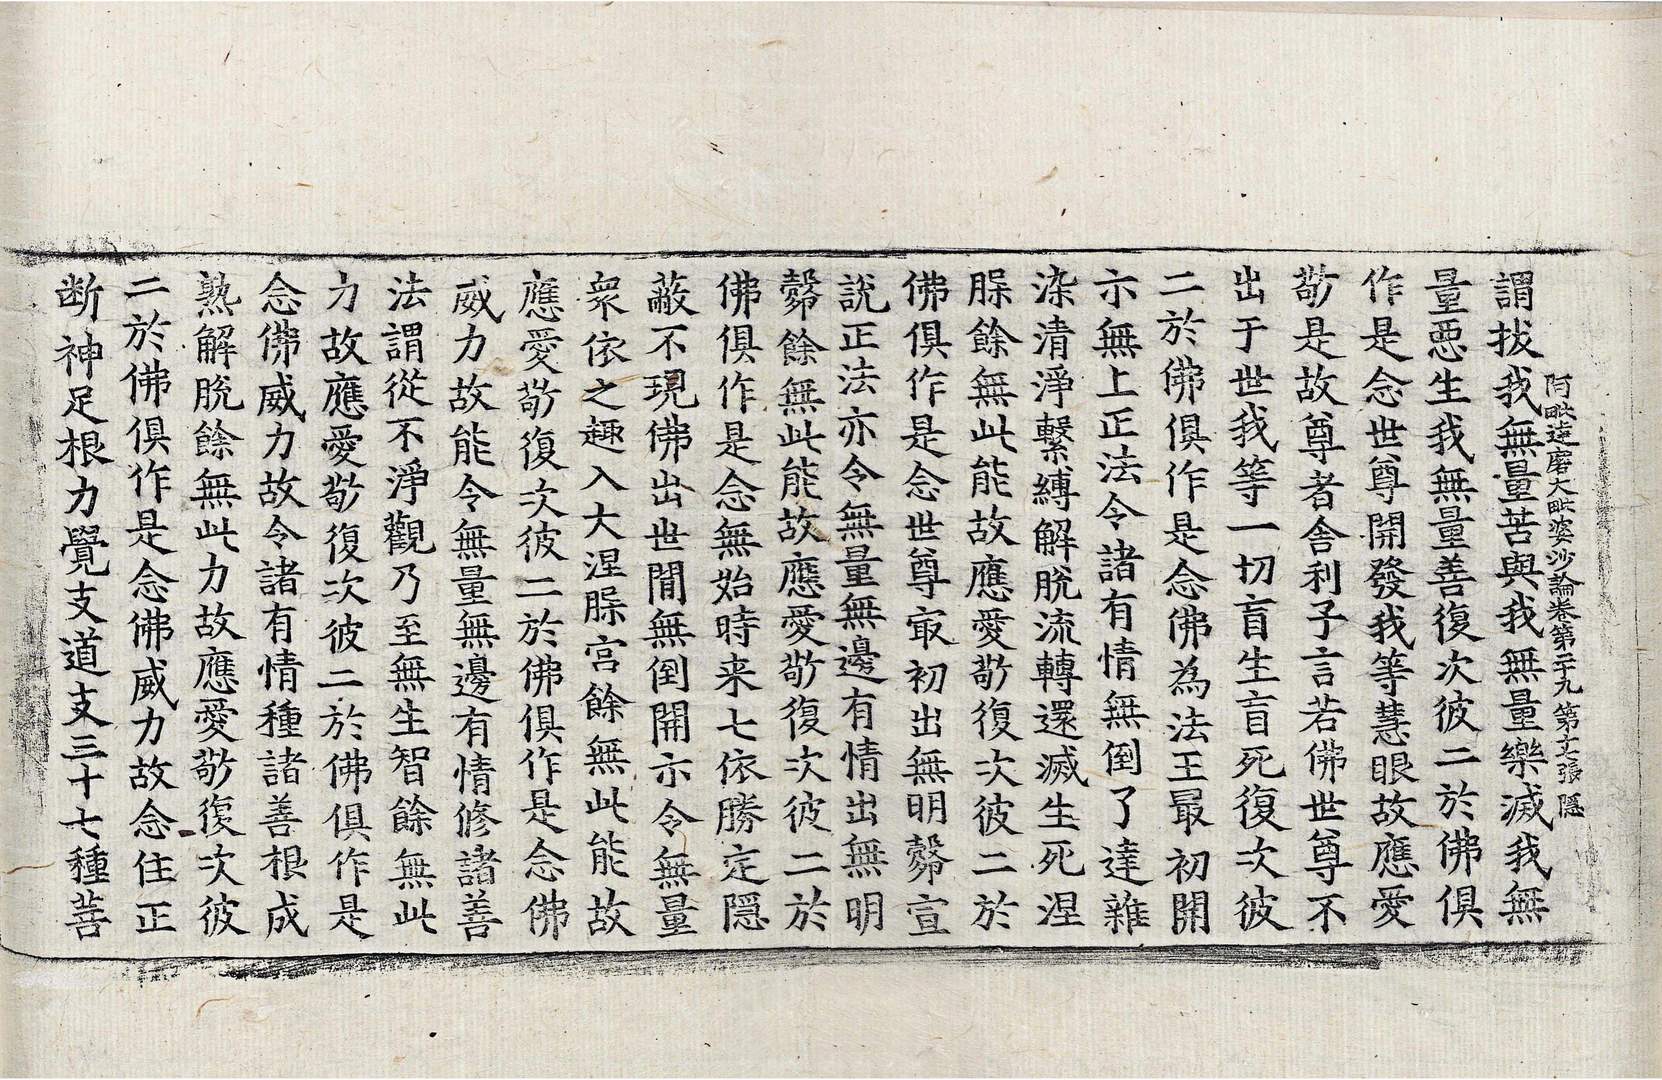 阿毗達磨大毗婆沙論卷第二十九 第張 隱
謂拔我無量苦與我無量樂滅我無
量惡生我無量善復次彼二於佛俱
作是念世尊開發我等慧眼故應愛
敬是故尊者舍利子言若佛世尊不
出于世我等一切盲生盲死復次彼
二於佛俱作是念佛為法王最初開
示無上正法令諸有情無倒了達雜
染清淨繫縛解脫流轉還滅生死涅
槃餘無此能故應愛敬復次彼二於
佛俱作是念世尊㝡初出無明㲉宣
說正法亦令無量無邊有情出無明
㲉餘無此能故應愛敬復次彼二於
佛俱作是念無始時来七依勝定隱
蔽不現佛出世間無倒開示令無量
衆依之趣入大涅槃宮餘無此能故
應愛敬復次彼二於佛俱作是念佛
威力故能令無量無邊有情修諸善
法謂從不淨觀乃至無生智餘無此
力故應愛敬復次彼二於佛俱作是
念佛威力故令諸有情種諸善根成
熟解脫餘無此力故應愛敬復次彼
二於佛俱作是念佛威力故念住正
断神足根力覺支道支三十七種菩